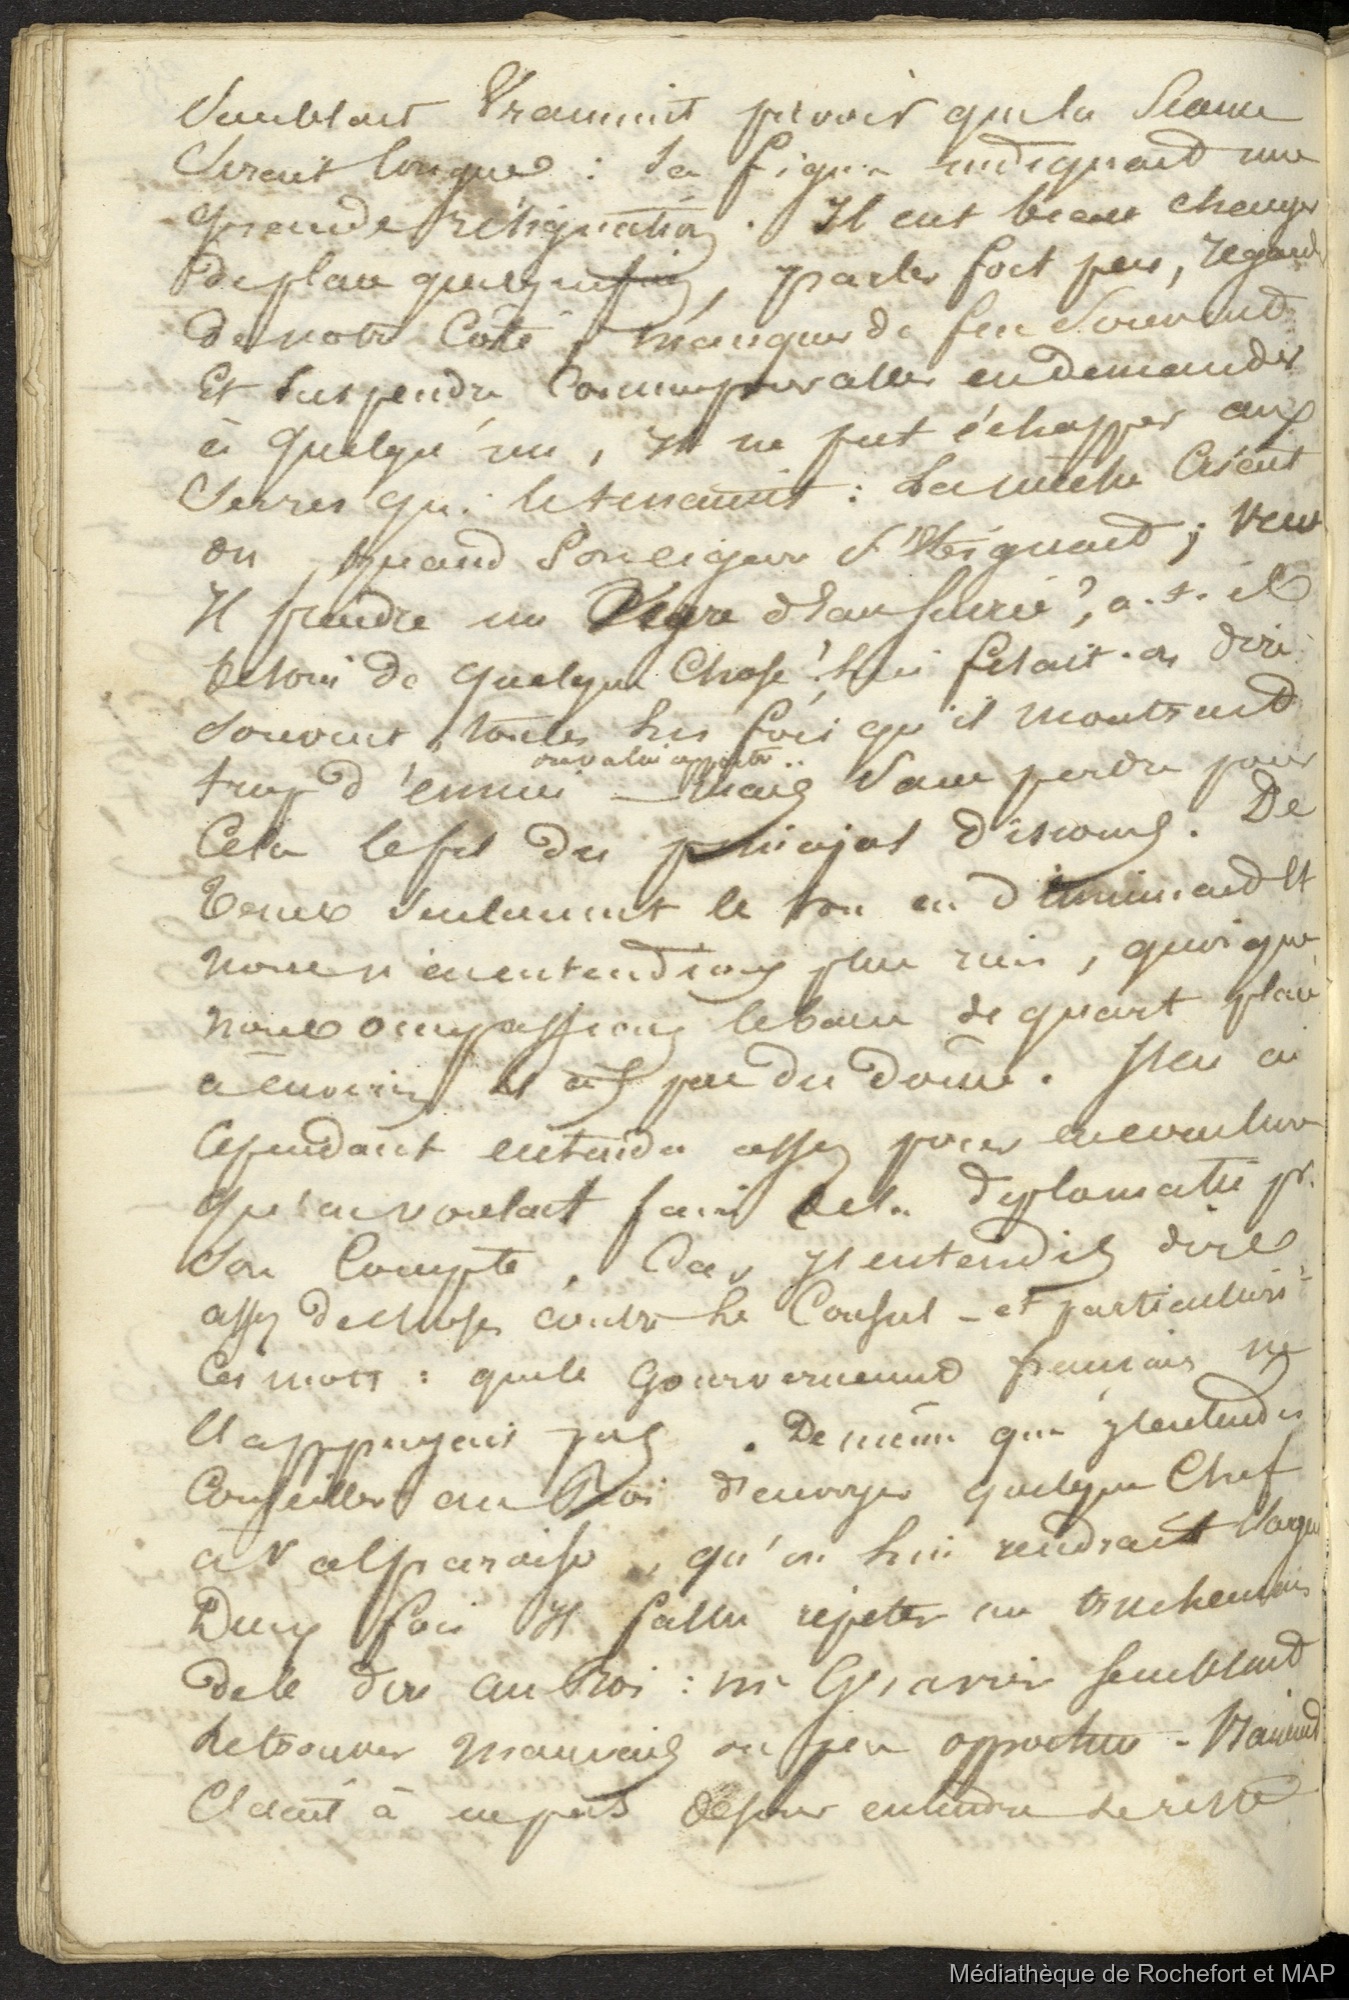 semblait vraiment prévoir que la séance
serait longue : sa figure indiquait une
grande résignation. Il eut beau changer
de place quelquefois, parler fort peu, regarder
de notre côté, manquer de feu souvent
et suspendre comme pour aller en demander
à quelqu'un, il ne put échapper aux
serres qui le tenaient : la mèche disait
on, quand son cigare s'éteignait ; veut
Il prendre un verre d'eau sucrée ?, a-t-il
besoin de quelque chose ! lui fesait-on dire
souvent, toutes les fois qu'il montrait
on va lui apporter..
trop d'ennui _ mais sans perdre pour
cela le fil du principal discours. De
temps seulement le ton en diminuait et
nous n'en entendions plus rien, quoique
nous occupassions le banc de quart placé
à environ pas du dôme. J'en ai
cependant entendu assez pour
qu'on voulait faire de la diplomatie pr.
son compte, car j'entendis dire
assez de choses contre le Consul _ et particulièrt
ces mots : que le gouvernement français ne
l'appuyait pas. De même que j'entendis
conseiller au Roi d'envoyer quelque chef
à Valparaiso, qu'on lui rendrait l'argent
Deux fois il fallu répéter au truchement
de le dire au Roi : mr Giravin semblait
le trouver mauvais ou peu opportun _
était à ne pas entendre le reste